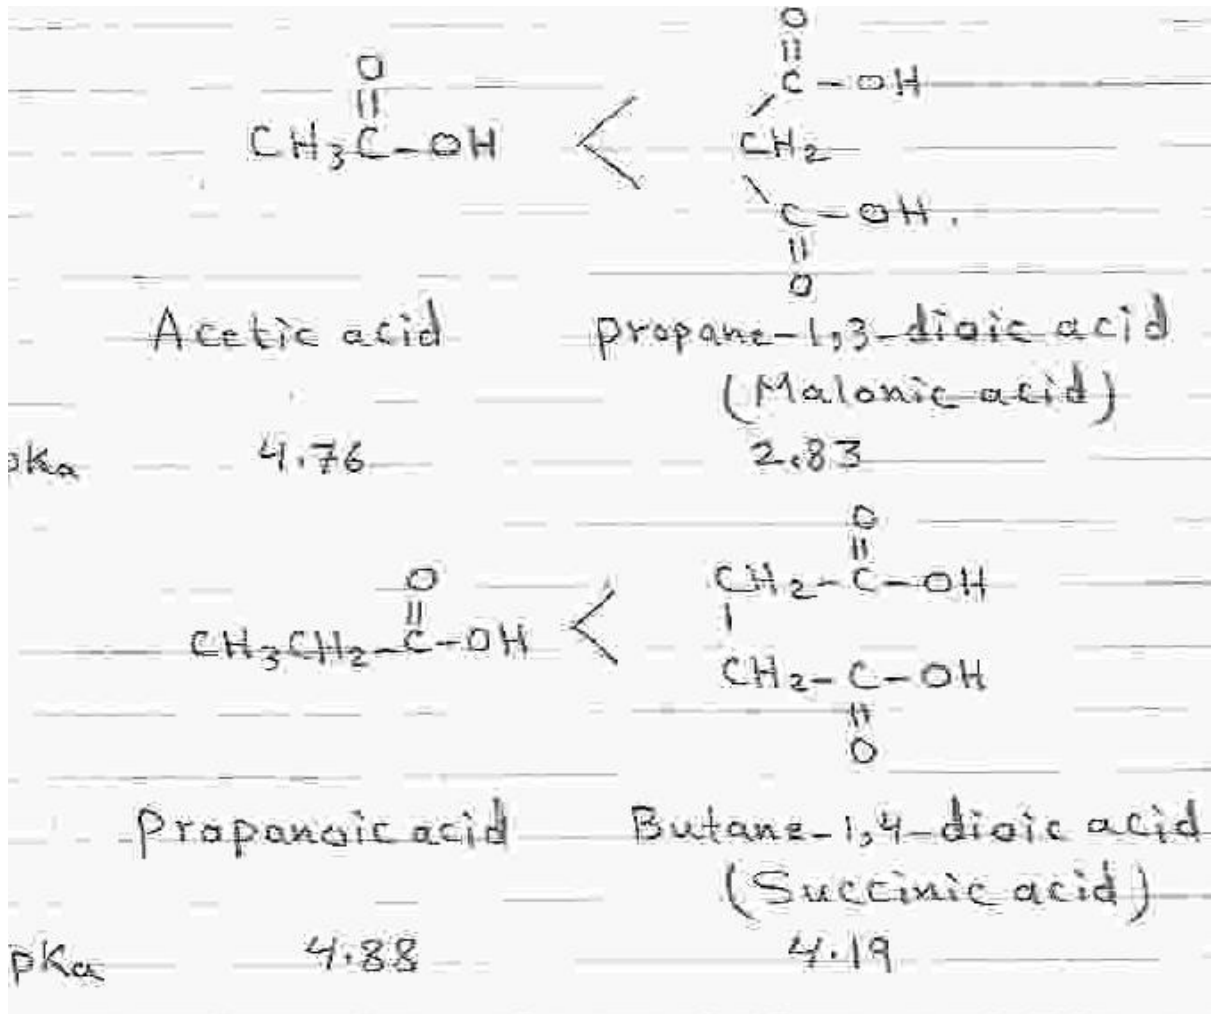 O
||
CH3C-OH < CH2
C-OH
C-OH.
||
O
Acetic acid propane-1,3-dioic acid
(Malonic acid)
pKa 4.76 2.83
O
||
CH3CH2-C-OH < CH2-C-OH
CH2-C-OH
||
O
Propanoic acid Butane-1,4-dioic acid
(Succinic acid)
pKa 4.88 4.19